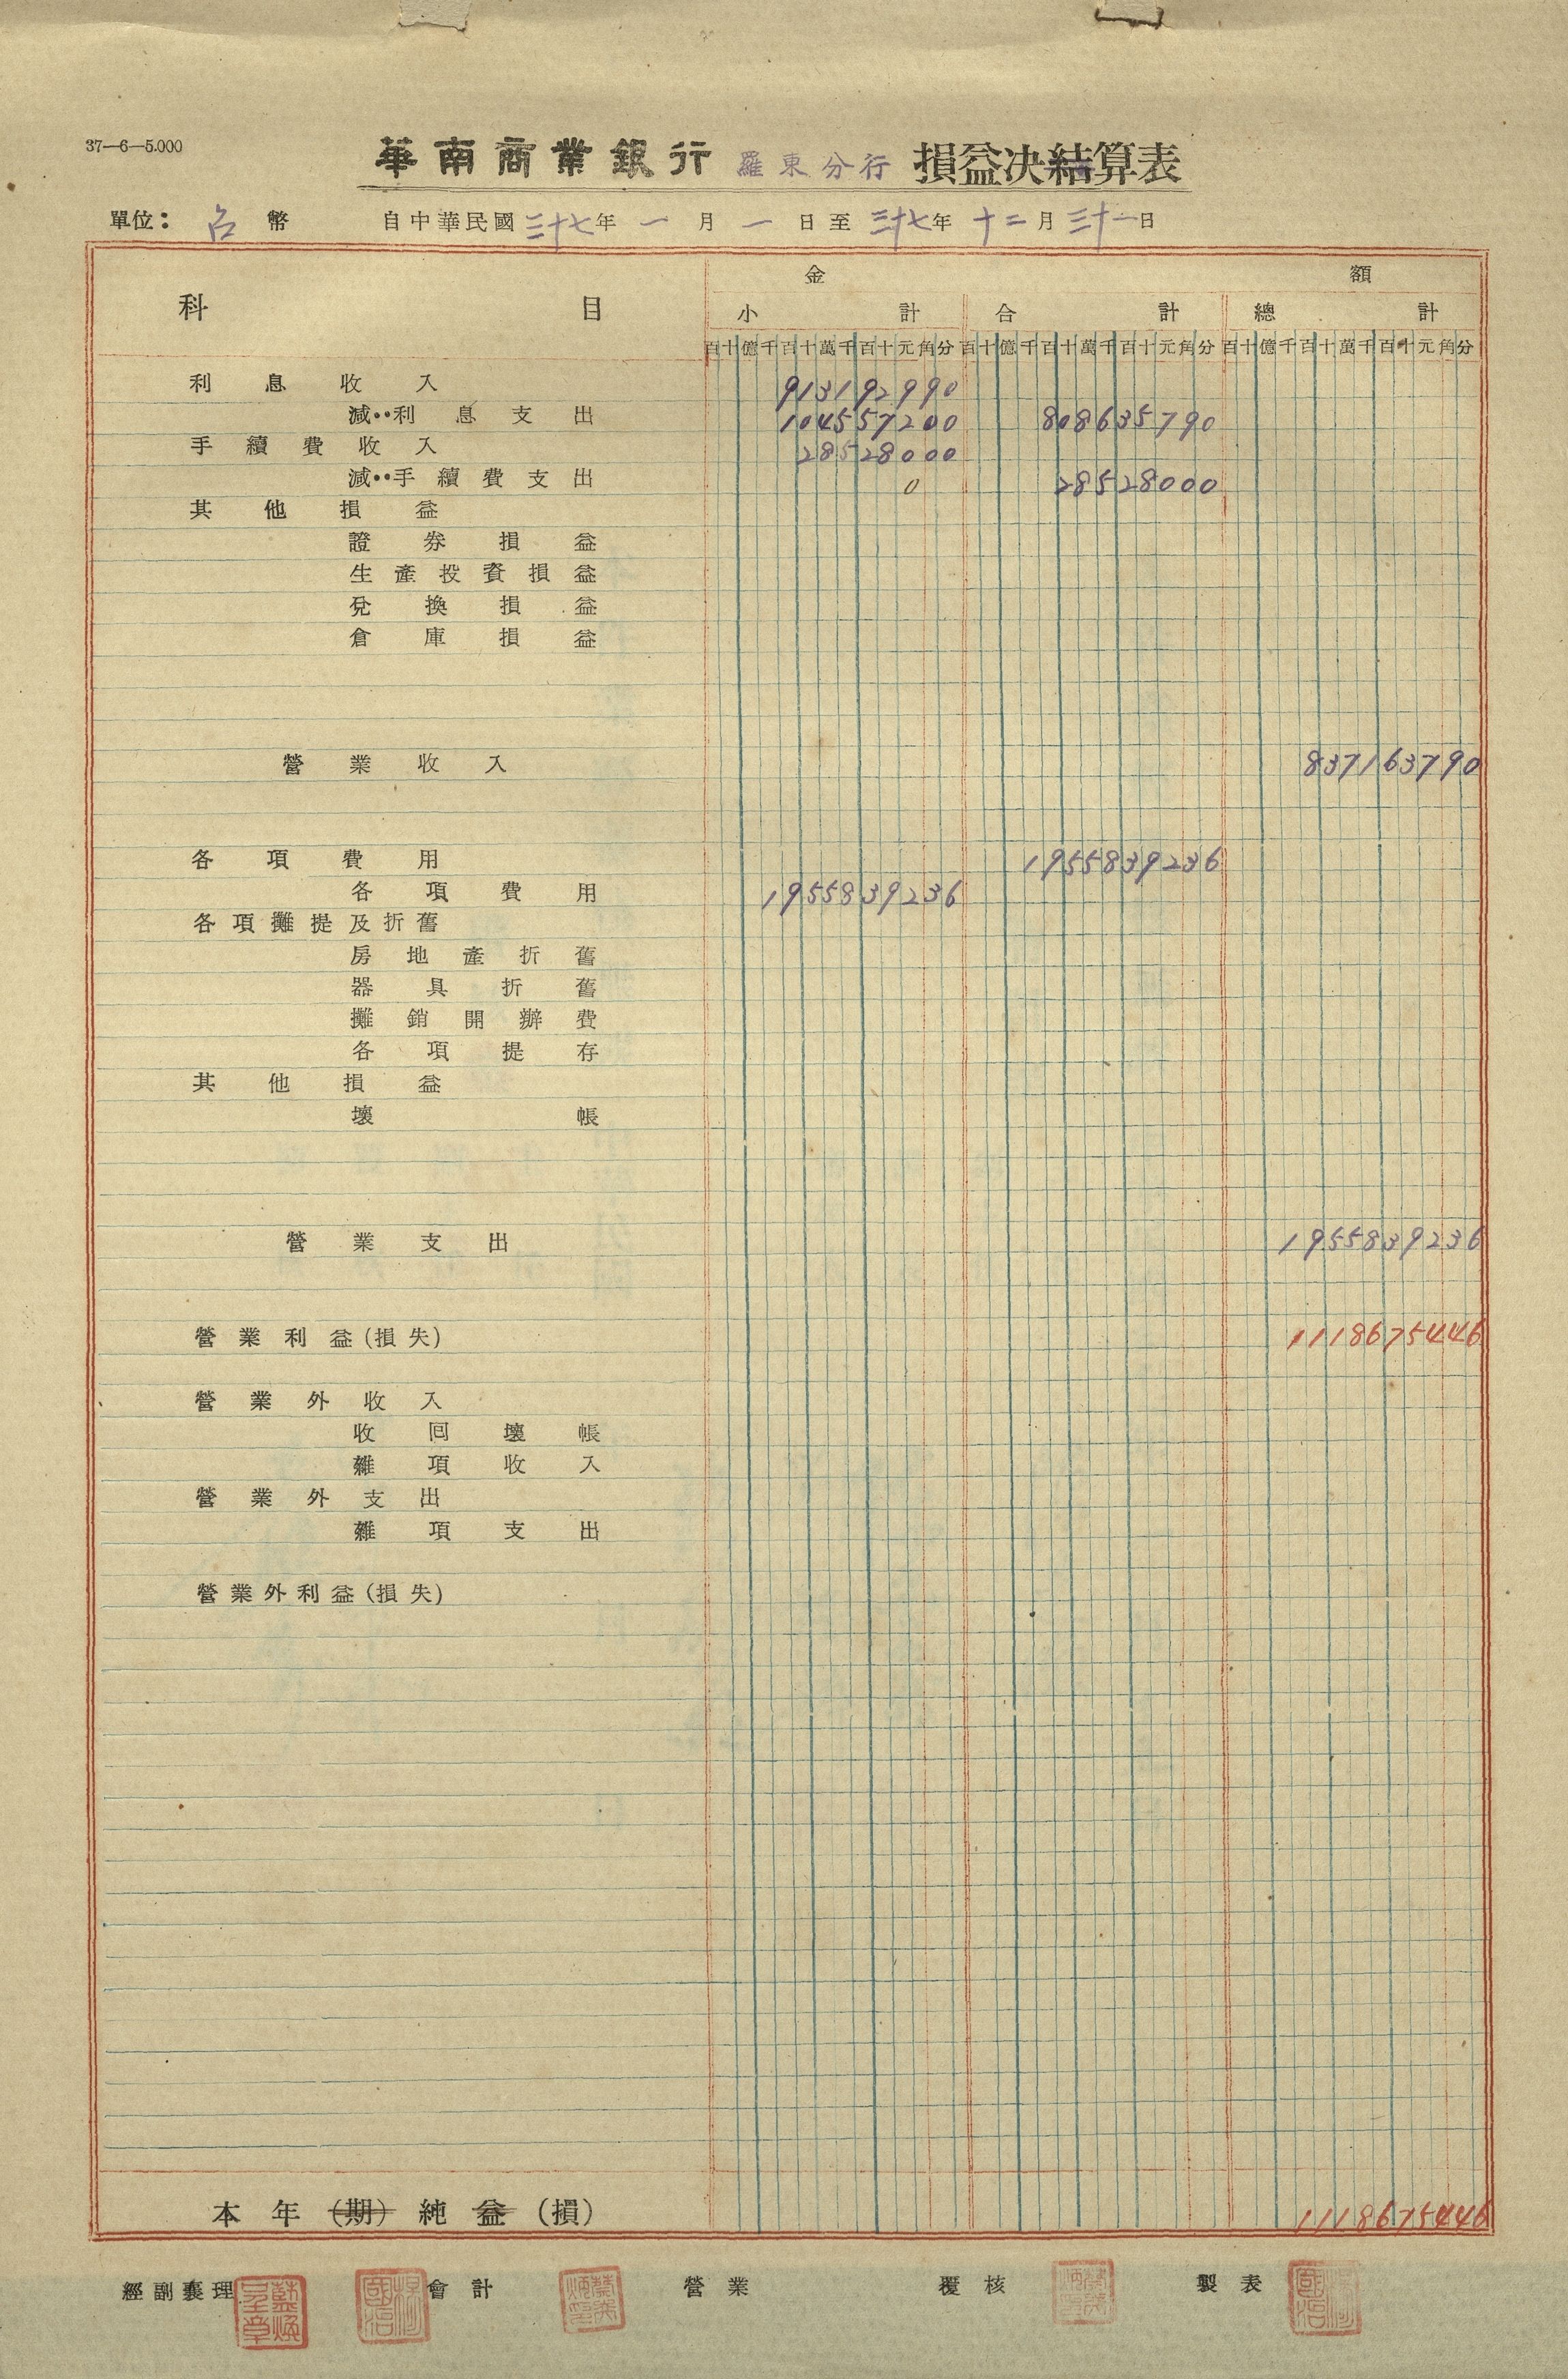 37—6—5.000
華南商業銀行 羅東分行 損益決結算表
單位：台幣 自中華民國三十七年一月一日至三十七年十二月三十一日
科目 金額
小計 合計 總計
百十億千百十萬千百十元角分 百十億千百十萬千百十元角分 百十億千百十萬千百十元角分
利息收入 913192990
減‥利息支出 104557200 808635790
手續費收入 28528000
減‥手續費支出 0 28528000
其他損益
證券損益
生產投資損益
兌換損益
倉庫損益
營業收入 837163790
各項費用 1955839236
各項費用 1955839236
各項攤提及折舊
房地產折舊
器具折舊
攤銷開辦費
各項提存
其他損益
壞帳
營業支出 1955839236
營業利益(損失) 1118675446
營業外收入
收回壞帳
雜項收入
營業外支出
雜項支出
營業外利益(損失)
本年(期)純益(損) 1118675446
經副襄理 會計 營業 覆核 製表